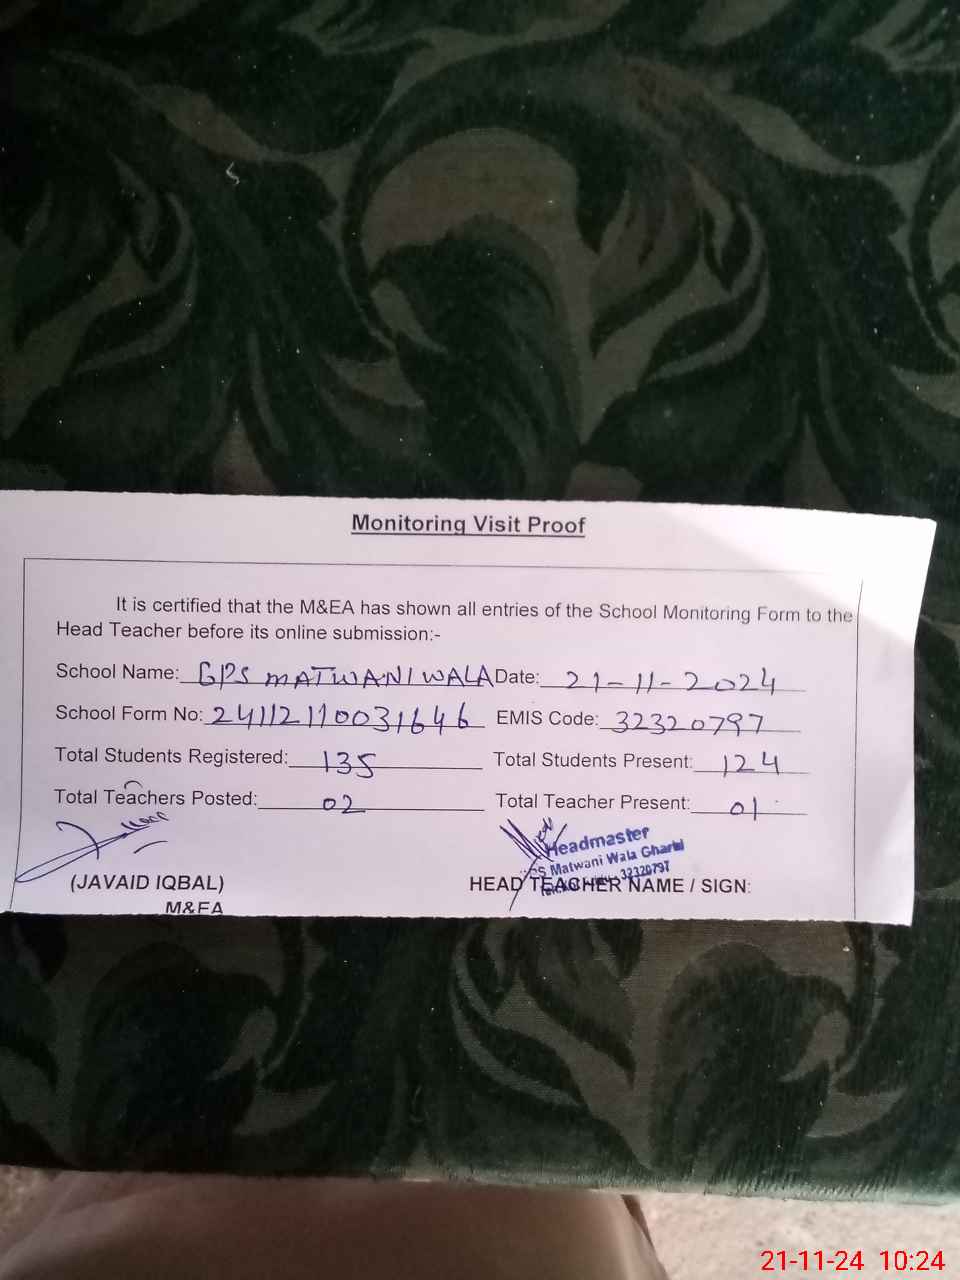 Monitoring Visit Proof
It is certified that the M&EA has shown all entries of the School Monitoring Form to the
Head Teacher before its online submission:-
School Name: GPS MATWANI WALA Date: 21-11-2024
School Form No: 24112110031646 EMIS Code: 32320797
Total Students Registered: 135 Total Students Present: 124
Total Teachers Posted: 02 Total Teacher Present: 01
Headmaster
Matwani Wala Gharbi
32320797
(JAVAID IQBAL) HEAD TEACHER NAME / SIGN:
M&EA
21-11-24 10:24